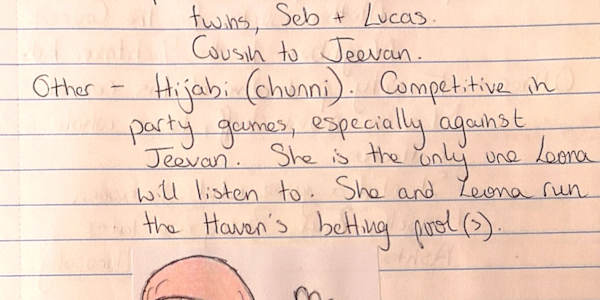 twins, Seb + Lucas.
Cousin to Jeevan.
Other - Hijabi (chunni). Competitive in
party games, especially against
Jeevan. She is the only one Leona
will listen to. She and Leona run
the Haven's betting pool(s).